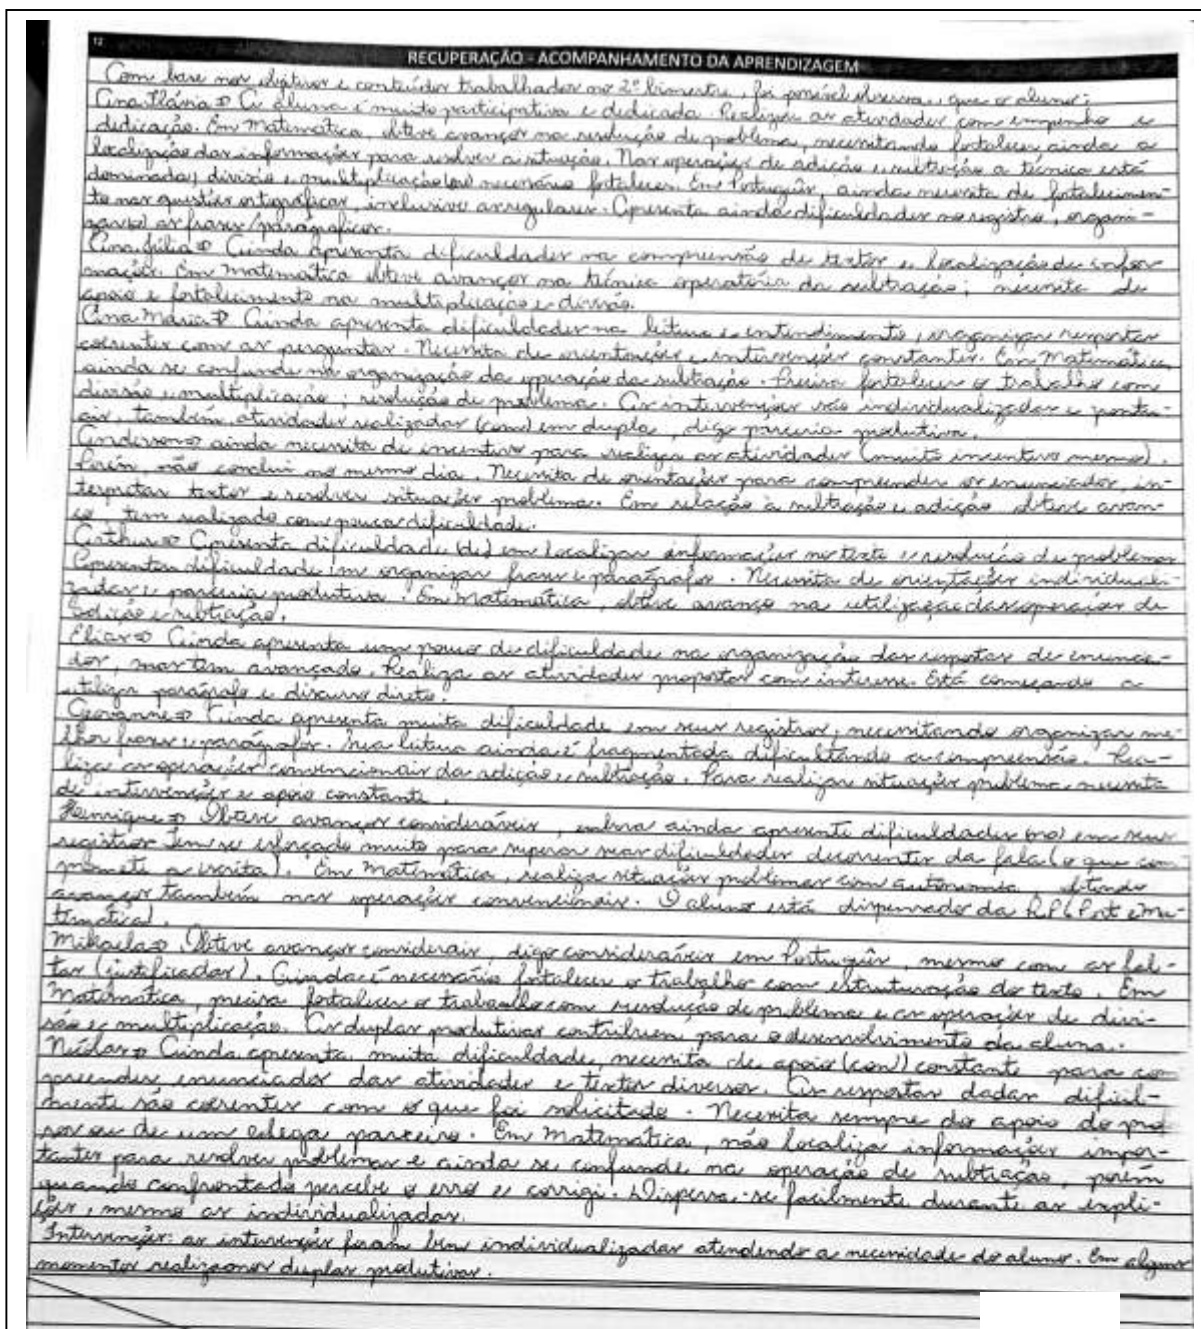 12
RECUPERAÇÃO - ACOMPANHAMENTO DA APRENDIZAGEM
Com base nos objetivos e conteúdos trabalhados no 2º bimestre, foi possível observar que os alunos:
Ana Flávia → A aluna é muito participativa e dedicada. Realiza as atividades com empenho e
dedicação. Em Matemática, obteve avanços na resolução de problema, necessitando fortalecer ainda a
localização das informações para resolver a situação. Nas operações de adição e subtração a técnica está
dominada; divisão e multiplicação (é) necessário fortalecer. Em Português, ainda necessita de fortalecimen-
to nas questões ortográficas, inclusive as regulares. Apresenta ainda dificuldades no registro, organi-
as frases/parágrafos.
Ana Júlia → Ainda apresenta dificuldades na compreensão de textos e localização de infor
mações. Em Matemática obteve avanços na técnica operatória da subtração; necessita de
apoio e fortalecimento na multiplicação e divisão.
Ana Maria → Ainda apresenta dificuldades na leitura e entendimento, organizar respostas
coerentes com as perguntas. Necessita de orientações e intervenções constantes. Em Matemática,
ainda se confunde na organização da operação da subtração. Precisa fortalecer o trabalho com
divisão e multiplicação; resolução de problema. As intervenções são individualizadas e pontu-
ais, também atividades realizadas (com) em dupla, digo parceria produtiva.
Anderson → ainda necessita de incentivo para realizar as atividades (muito incentivo mesmo).
Porém, não conclui no mesmo dia. Necessita de orientações para compreender os enunciados, in-
terpretar textos e resolver situações problema. Em relação à subtração e adição obteve avan-
ço tem realizado com pouca dificuldade.
Arthur → Apresenta dificuldade (de) em localizar informações no texto e resolução de problemas
Apresenta dificuldade em organizar frases e parágrafos. Necessita de orientações individuali-
zadas e parceria produtiva. Em Matemática, obteve avanço na utilização das operações de
adição e subtração.
Elias → Ainda apresenta um pouco de dificuldade na organização das respostas de enuncia-
dos, mas tem avançado. Realiza as atividades propostas com interesse. Está começando a
utilizar parágrafo e discurso direto.
Geovanne → Ainda apresenta muita dificuldade em seus registros, necessitando organizar me-
lhor frases e parágrafos. Sua leitura ainda é fragmentada dificultando a compreensão. Rea-
liza as operações convencionais da adição e subtração. Para realizar situações problema necessita
de intervenções e apoio constante.
Henrique → Obteve avanços consideráveis, embora ainda apresente dificuldades (no) em seus
registros Tem se esforçado muito para superar suas dificuldades decorrentes da fala (o que com
promete a escrita). Em Matemática, realiza situações problemas com autonomia, obtendo
avanços também nas operações convencionais. O aluno está dispensado da RP (Port e Ma-
temática).
Mikaela → Obteve avanços considerais, digo consideráveis em Português, mesmo com as fal-
tas (justificadas). Ainda é necessário fortalecer o trabalho com estruturação do texto. Em
Matemática, precisa fortalecer o trabalho com resolução de problema e as operações de divi-
são e multiplicação. As duplas produtivas contribuem para o desenvolvimento da aluna.
Nicolas → Ainda apresenta muita dificuldade, necessita de apoio (con) constante para com
preender enunciados das atividades e textos diversos. As respostas dadas dificil-
mente são coerentes com o que foi solicitado. Necessita sempre do apoio do profes
sor ou de um colega parceiro. Em Matemática, não localiza informações impor-
tantes para resolver problemas e ainda se confunde na operação de subtração, porém
quando confrontado percebe o erro e corrigi. Dispersa-se facilmente durante as expli-
ções, mesmo as individualizadas.
Intervenções: as intervenções foram bem individualizadas atendendo a necessidade do aluno. Em alguns
momentos realizamos duplas produtivas.